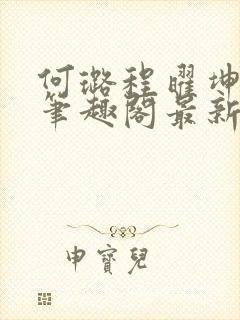 何璐程曜坤
笔趣阁最新
申寶兒